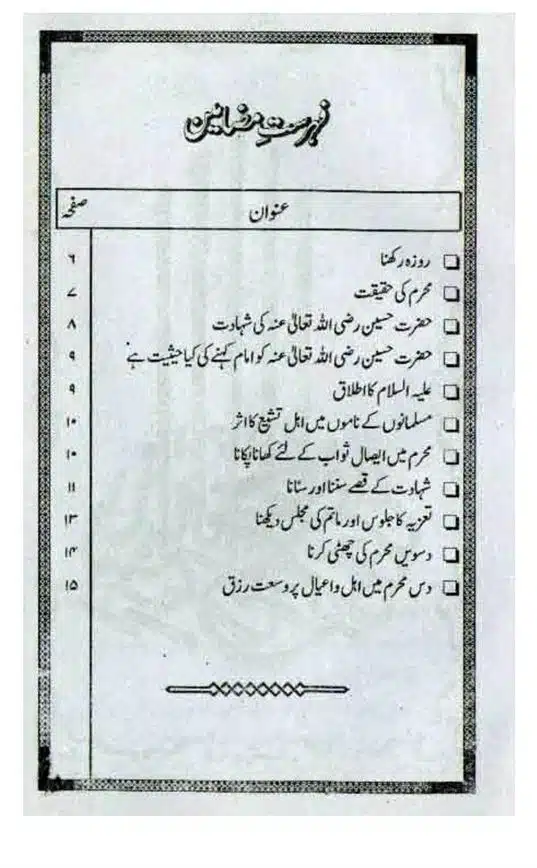 فہرستِ مضامین
عنوان صفحہ
روزہ رکھنا ۶
محرم کی حقیقت ۷
حضرت حسین رضی اللہ تعالیٰ عنہ کی شہادت ۸
حضرت حسین رضی اللہ تعالیٰ عنہ کو امام کہنے کی کیا حیثیت ہے ۹
علیہ السلام کا اطلاق ۹
مسلمانوں کے ناموں میں اہل تشیع کا اثر ۱۰
محرم میں ایصال ثواب کے لئے کھانا پکانا ۱۰
شہادت کے قصے سننا اور سنانا ۱۱
تعزیہ کا جلوس اور ماتم کی مجلس دیکھنا ۱۳
دسویں محرم کی چھٹی کرنا ۱۴
دس محرم میں اہل و اعیال پر وسعت رزق ۱۵